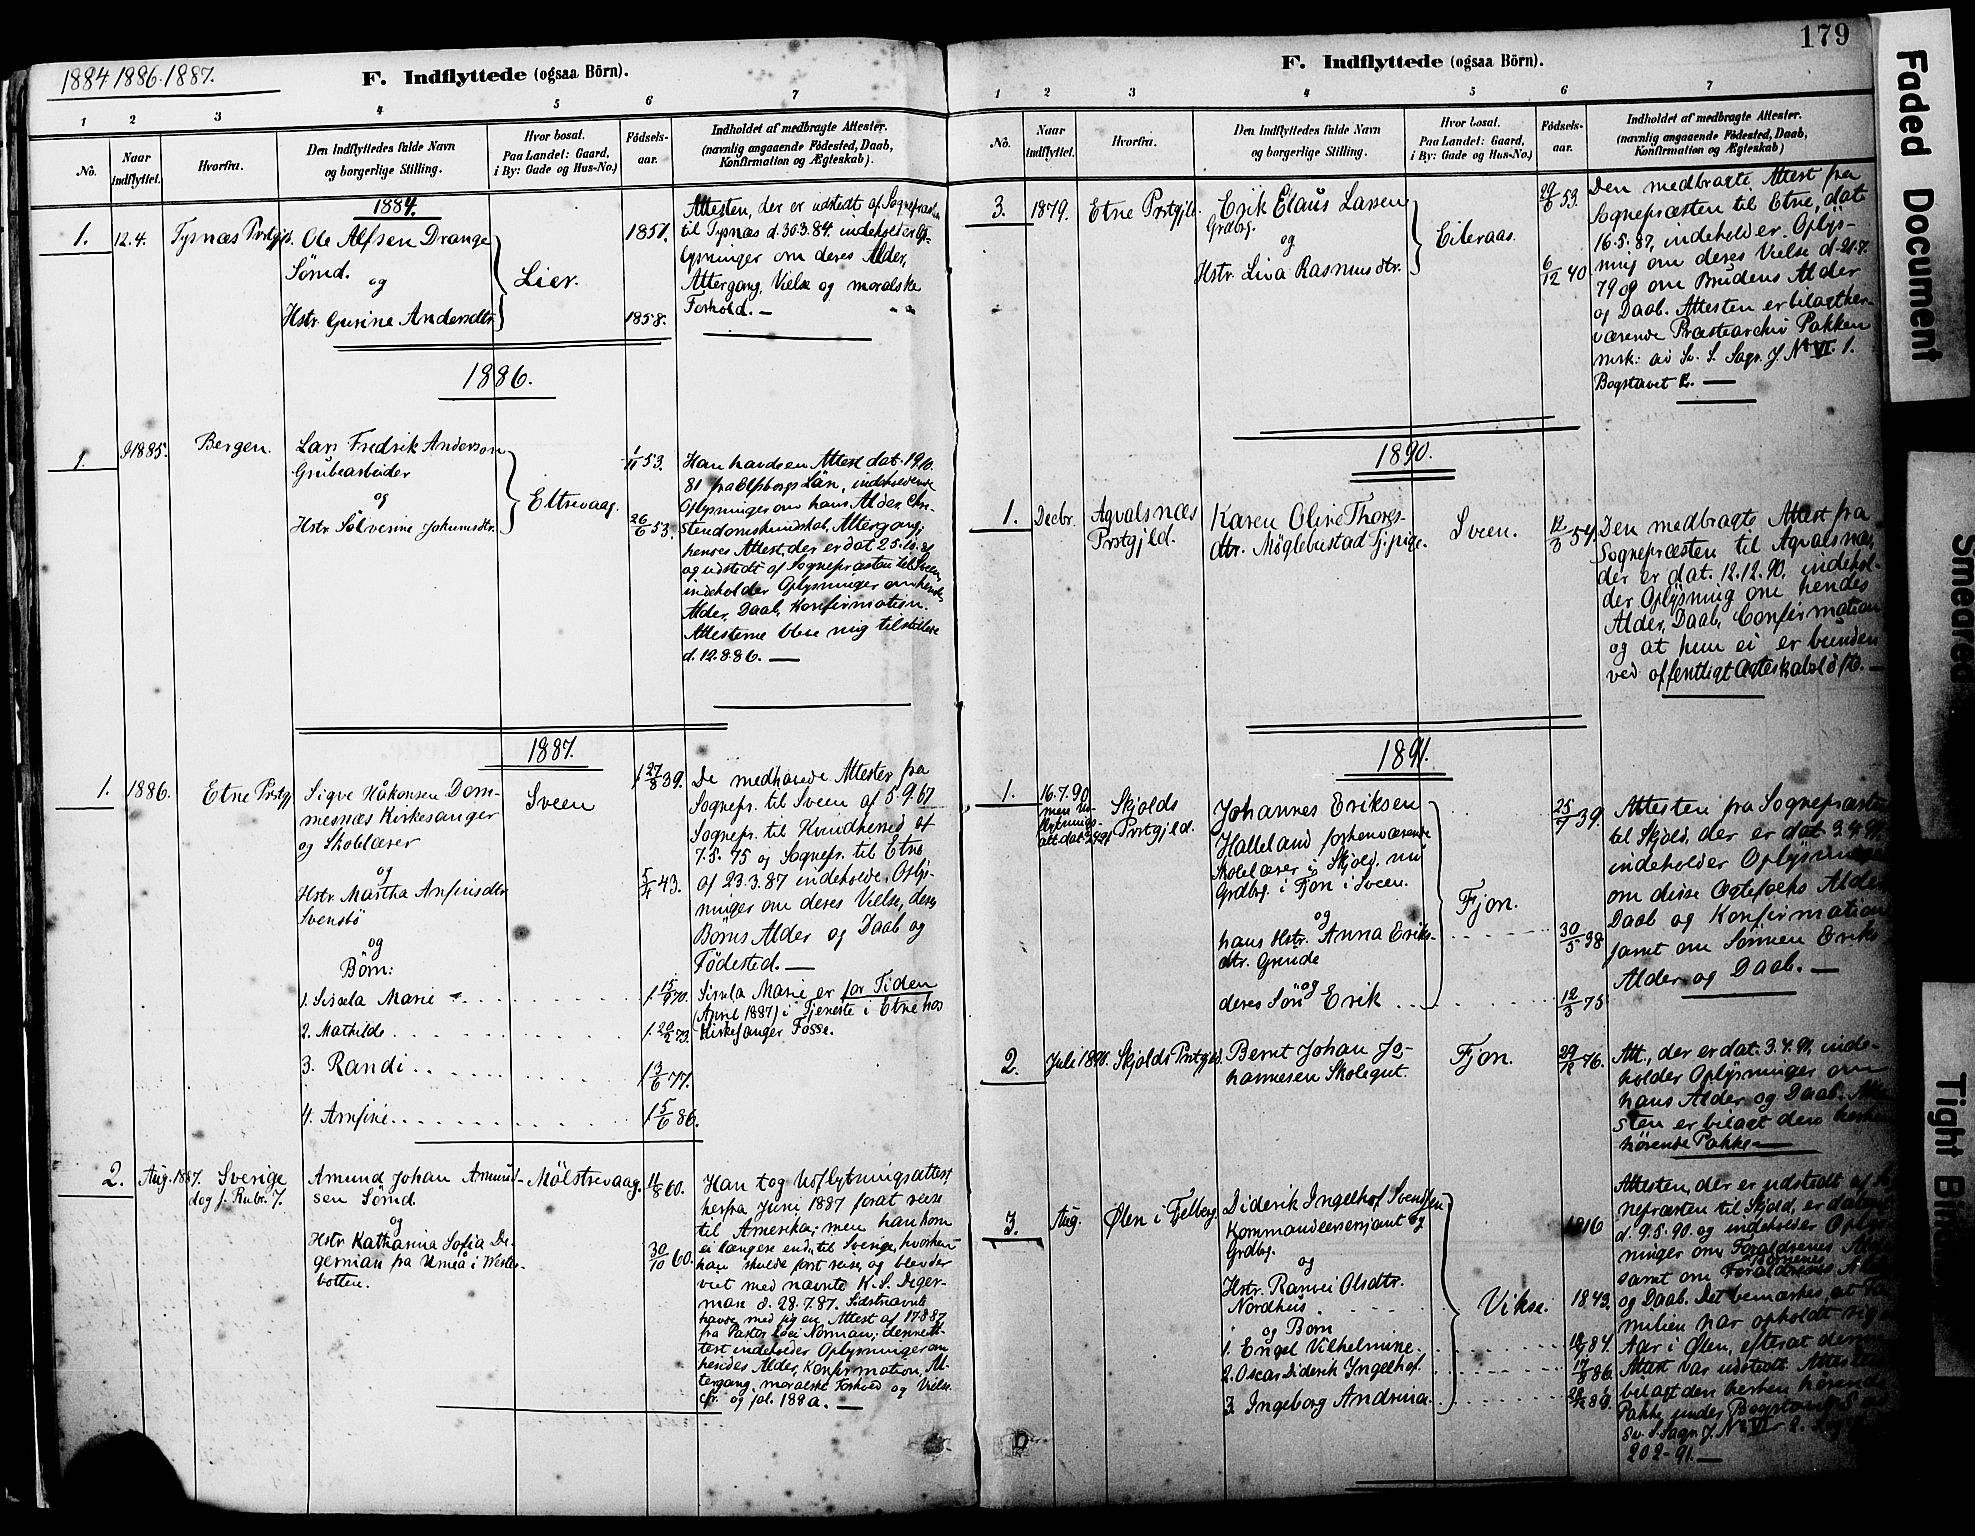 1884 1886. 1887.
F. Indflyttede (ogsaa Börn).
1
2
3
4
5
6
7
No.
Naar indflyttet.
Hvorfra.
Den Indflyttedes fulde Navn
og borgerlige Stilling.
Hvor bosat.
Paa Landet: Gaard,
i By: Gade og Hus-No.)
Fødsels-
aar.
Indholdet af medbragte Attester.
(navnlig angaaende Fødested, Daab,
Konfirmation og Ægteskab).
1884.
1.
12.4.
Tysnæs Prstgjld.
Ole Alfsen Drange
Sömd.
og
Hstr. Gurine Andersdtr.
Lier.
1851.
1858.
Attesten, der er udstedt af Sognepræsten
til Tysnæs d. 30.3.84. indeholder Op-
lysninger om deres Alder,
Attergang, Vielse og moralske
Forhold. —
1886.
1.
1885.
Bergen.
Lars Fredrik Anderson
Grubearbeider
og
Hstr. Sölverine Johannsdtr.
Eltrevaag.
1/11 53.
26/6 53.
Han havde en Attest dat. 19.10.
81 fra Elfsborgs Län, indeholdende
Oplysninger om hans Alder, Chri-
stendomskundskab, Attergang;
hennes Attest, der er dat 25.10.81
og udstedt af Sognepræsten til Sveen,
indeholder Oplysninger om hendes
Alder, Daab, Konfirmation.
Attesterne bleve mig tilstillede
d. 12.8.86. —
1887.
1.
1886.
Etne Prstgj
Sigve Håkonsen Dom-
mesnæs Kirkesanger
og Skolelærer
og
Hstr. Martha Arnfinsdtr
Svensbö
og
Börn:
1. Sissela Marie
2. Mathilde
3. Randi
4. Arnfine
Sveen
27/8 39.
5/4 43.
15/9 70.
26/2 73.
13/6 77.
15/6 86.
De medhavede Attester fra
Sognepr. til Sveen af 5.9.67
Sognepr. til Kvindherred af
7.5.75 og Sognepr. til Etne
af 23.3.87 indeholde Oplys-
ninger om deres Vielse, deres
Börns Alder og Daab og
Födested. —
Sissela Marie er for Tiden
(April 1887) i Tjeneste i Etne hos
Kirkesanger Fosse.
2.
Aug. 1887.
Sverige
dog f. Rubr. 7.
Amund Johan Amund-
sen Sömd.
og
Hstr. Katharina Sofia De-
german fra Umeå i Wester-
botten.
Mölstrevaag.
11/8 60.
30/10 60.
Han tog Udflytningsattest
herfra Juni 1887 forat reise
til Amerika; men han kom
ei længere end til Sverige, hvorhen
han skulde först reise, og blev der
viet med nævnte K. S. Deger-
man d. 28.7.87. Sidstnævnte
havde med sig en Attest af 17.8.87
fra Pastor Norman; denne At-
test indeholder Oplysninger om
hendes Alder, Konfirmation, At-
tergang, moralske Forhold og Vielse.
cfr. og fol. 188 a. —
179
F. Indflyttede (ogsaa Börn).
1
2
3
4
5
6
7
No.
Naar
indflyttet.
Hvorfra.
Den Indflyttedes fulde Navn
og borgerlige Stilling.
Hvor bosat.
Paa Landet: Gaard,
i By: Gade og Hus-No.)
Fødsels-
aar.
Indholdet af medbragte Attester.
(navnlig angaaende Fødested, Daab,
Konfirmation og Ægteskab)
3.
1879.
Etne Prstgjld.
Erik Elaus Larsen
Grdbg.
og
Hstr. Liva Rasmusdtr.
Eileraas.
29/6 53.
6/12 40.
Den medbragte Attest fra
Sognepræsten til Etne, dat
16.5.87, indeholder Oplys-
ning om deres Vielse d. 21.7.
79 og om Brudens Alder
og Daab. Attesten er bilagt her-
værende Præstearchiv Pakken
mrk: av Sv. S. Sagr. J. No VI. 1.
Bogstavet E. —
1890.
1.
Decbr.
Aqvalsnæs
Prstgjld.
Karen Oline Thores-
dtr. Möglebustad Tj.pige.
Sveen.
12/3 54.
Den medbragte Attest fra
Sognepræsten til Aqvalsnæs,
der er dat. 12.12.90, indehol-
der Oplysning om hendes
Alder, Daab, Confirmation
og at hun ei er bunden
ved offentligt Ægteskabslöfte. —
1891.
1.
16.7.90
men Ud-
flytnings-
att. dat.
Skjolds
Prstgjld.
Johannes Eriksen
Halleland forhenværende
Skolelærer i Skjold, nu
Grdbg. i Fjon i Sveen.
og
hans Hstr. Anna Eriks-
dtr. Grinde
og
deres Sön Erik
Fjon.
25/7 39.
30/5 38
12/3 75
Attesten fra Sognepræsten
til Skjold, der er dat. 3.4.91,
indeholder Oplysninger
om disse Ægtefolks Alder
Daab og Konfirmation
samt om Sönnen Eriks
Alder og Daab. —
2.
Juli 1891.
Skjolds Prstgjld.
Bernt Johan Jo-
hannesen Skolegut.
Fjon.
29/12 76.
Att., der er dat. 3.4.91, inde-
holder Oplysninger om
hans Alder og Daab. Atte-
sten er bilagt den herhen
hörende Pakke —
3.
Aug.
Ølen i Fjelberg
Diderik Ingelhof Svendsen
Kommandeersersjant og
Grdbg.
og
Hstr. Ranvei Olsdtr.
Nordhus.
og Born
1. Engel Vilhelmine.
2. Oscar Diderik Ingelhof.
3. Ingeborg Andrina.
Vikse.
1816
1843.
84.
17/3 86.
89.
Attesten, der er udstedt af Sog-
nepræsten til Skjold, er dateret
d. 9.5.90 og indeholder Oplys-
ninger om Forældrenes Alder
samt om Börnenes Alder
og Daab. Det bemærkes, at Fa-
milien har opholdt sig
Aar i Ølen, efterat denne
Attest var udstedt. Attesten
bilagt den herhen hörende
Pakke under Bogstavet
Sv. S. Sagr. J. No VI
20.2-91. —
Faded Document
Smeared
Tight Bind